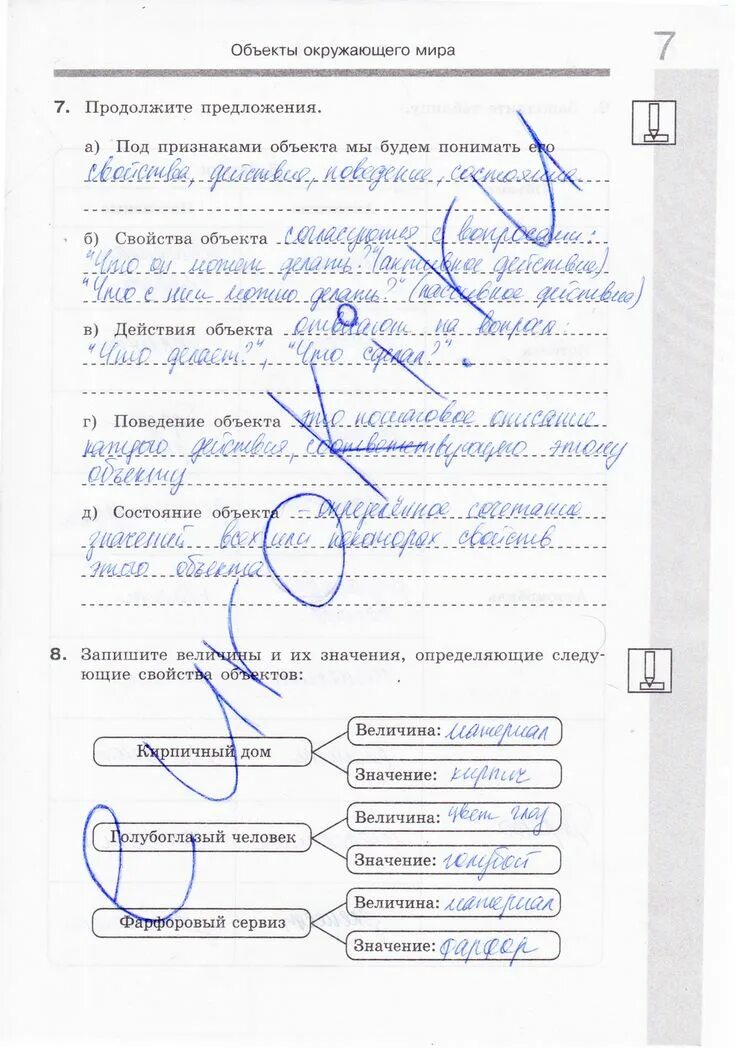 Объекты окружающего мира
7
7. Продолжите предложения.
а) Под признаками объекта мы будем понимать его
свойства, действия, поведение, состояния
б) Свойства объекта согласуются с вопросами:
"Что он может делать?" (активное действие)
"Что с ним можно делать?" (пассивное действие)
в) Действия объекта отвечают на вопросы:
"Что делает?", "Что сделал?".
г) Поведение объекта это пошаговое описание
каждого действия, соответствующего этому
объекту
д) Состояние объекта – определённое сочетание
значений всех или некоторых свойств
этого объекта
8. Запишите величины и их значения, определяющие следу-
ющие свойства объектов:
Кирпичный дом
Величина: материал
Значение: кирпич
Голубоглазый человек
Величина: цвет глаз
Значение: голубой
Фарфоровый сервиз
Величина: материал
Значение: фарфор